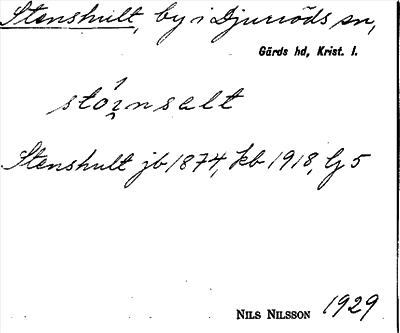 Stenshult, by i Djurröds sn,
Gärds hd, Krist. l.
Stenshult jb 1874, kb 1918, Gj 5
NILS NILSSON 1929